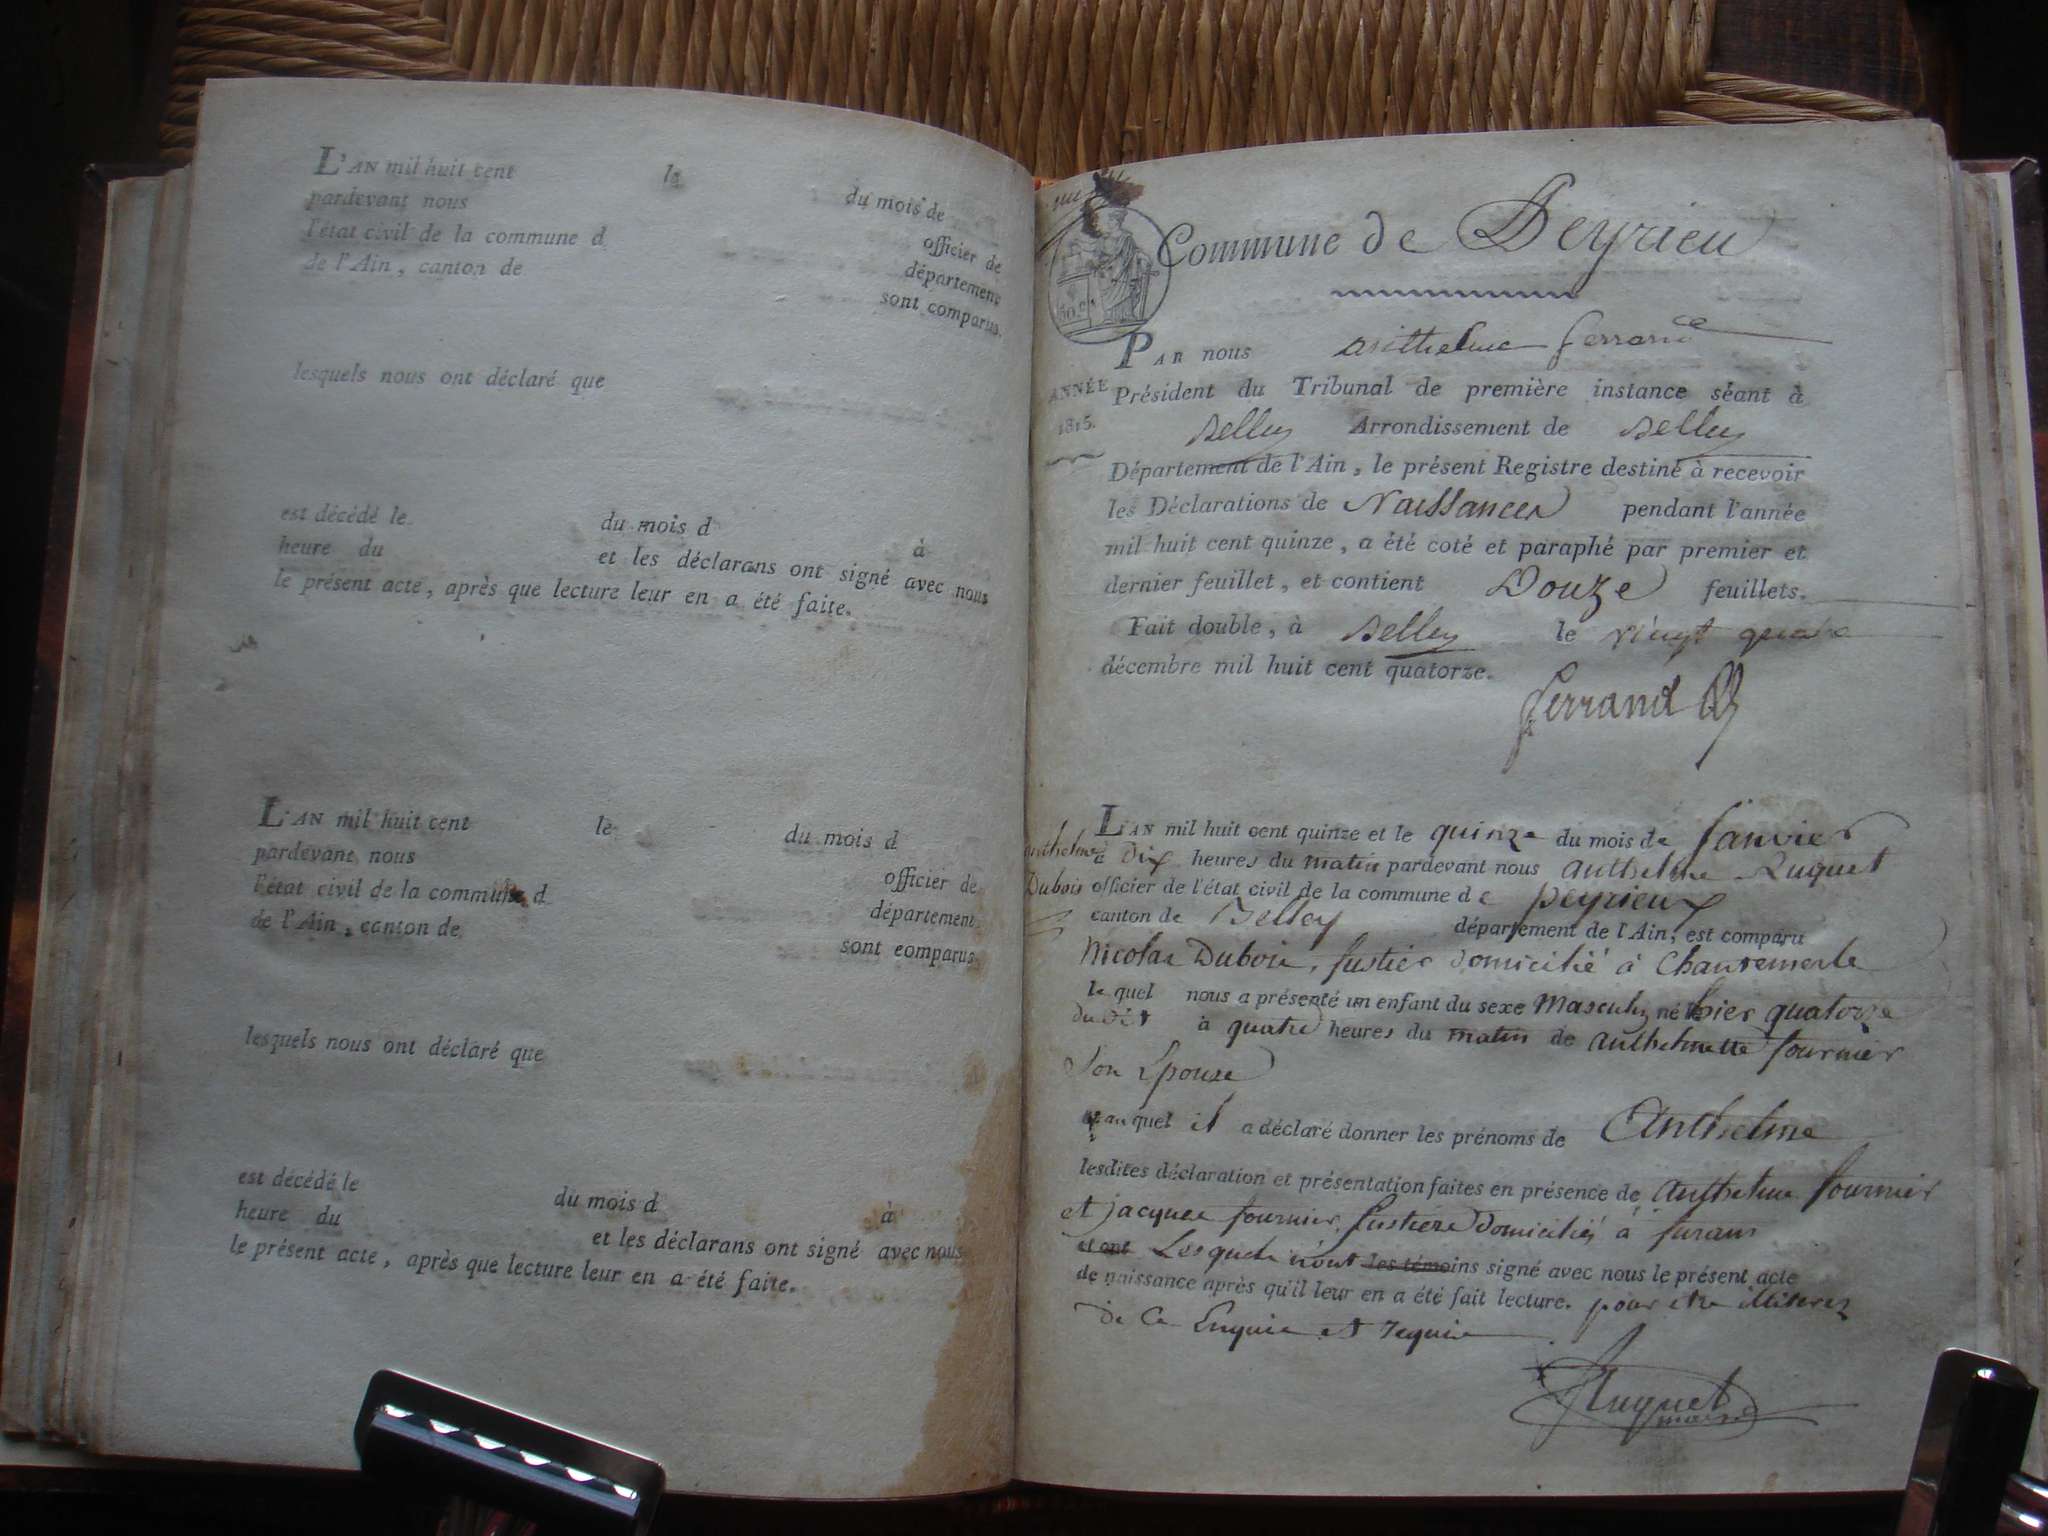 L'AN mil huit cent le du mois de
pardevant nous officier de
l'état civil de la commune d département
de l'Ain, canton de sont comparus.
lesquels nous ont déclaré que
est décédé le du mois d à
heure du et les déclarans ont signé avec nous
le présent acte, après que lecture leur en a été faite.
L'AN mil huit cent le du mois d
pardevant nous officier de
l'état civil de la commune d département
de l'Ain, canton de sont comparus
lesquels nous ont déclaré que
est décédé le du mois d à
heure du et les déclarans ont signé avec nous
le présent acte, après que lecture leur en a été faite.
Commune de Peyrieu
50.c
ANNÉE
1815.
PAR nous Anthelme ferrand
Président du Tribunal de première instance séant à
Belley Arrondissement de Belley
Département de l'Ain, le présent Registre destiné à recevoir
les Déclarations de Naissances pendant l'année
mil huit cent quinze, a été coté et paraphé par premier et
dernier feuillet, et contient Douze feuillets.
Fait double, à Belley le vingt quatre
décembre mil huit cent quatorze.
ferrand
anthelme
Dubois
L'AN mil huit cent quinze et le quinze du mois de Janvier
à Dix heures du matin pardevant nous anthelme Ruquet
officier de l'état civil de la commune de peyrieux
canton de Belley département de l'Ain, est comparu
Nicolas Dubois, fustier domicilié à Chantemerle
le quel nous a présenté un enfant du sexe Masculin né hier quatorze
du dit à quatre heures du matin de anthelmette fournier
Son Epouse
et auquel il a déclaré donner les prénoms de Anthelme
lesdites déclaration et présentation faites en présence de anthelme fournier
et jacques fournier, fustiers Domiciliés à furans
et ont Lesquels n'ont les témoins signé avec nous le présent acte
de naissance après qu'il leur en a été fait lecture. pour etre illiterez
de ce Enquis et requis
Ruquet
maire